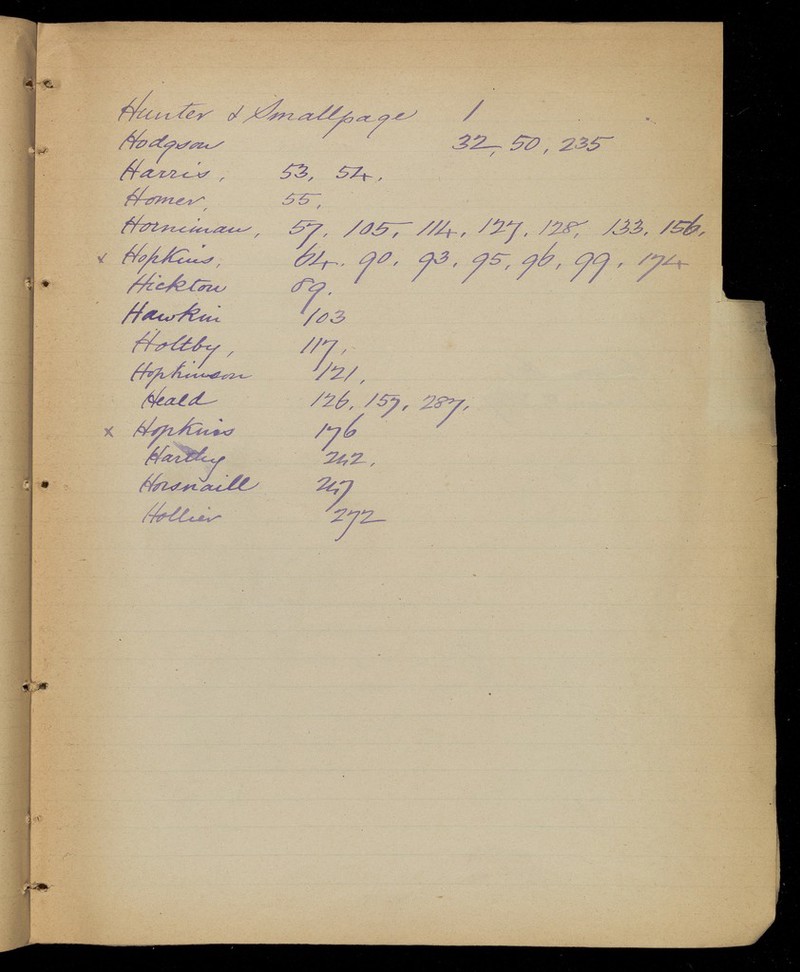 Hunter & Smallpage 1
Hodgson 32, 50, 235
Harris, 53, 54,
Homer, 55,
Horniman, 57, 105, 114, 127, 128, 133, 156,
x Hopkins, 64. 90, 93, 95, 96, 99, 174
Hickton 89.
Hawkin 103
Holtby, 117,
Hopkinson 121,
Heald 126, 157, 287,
x Hopkins 176
Hartley 242,
Horsnaill 247
Hollier 272